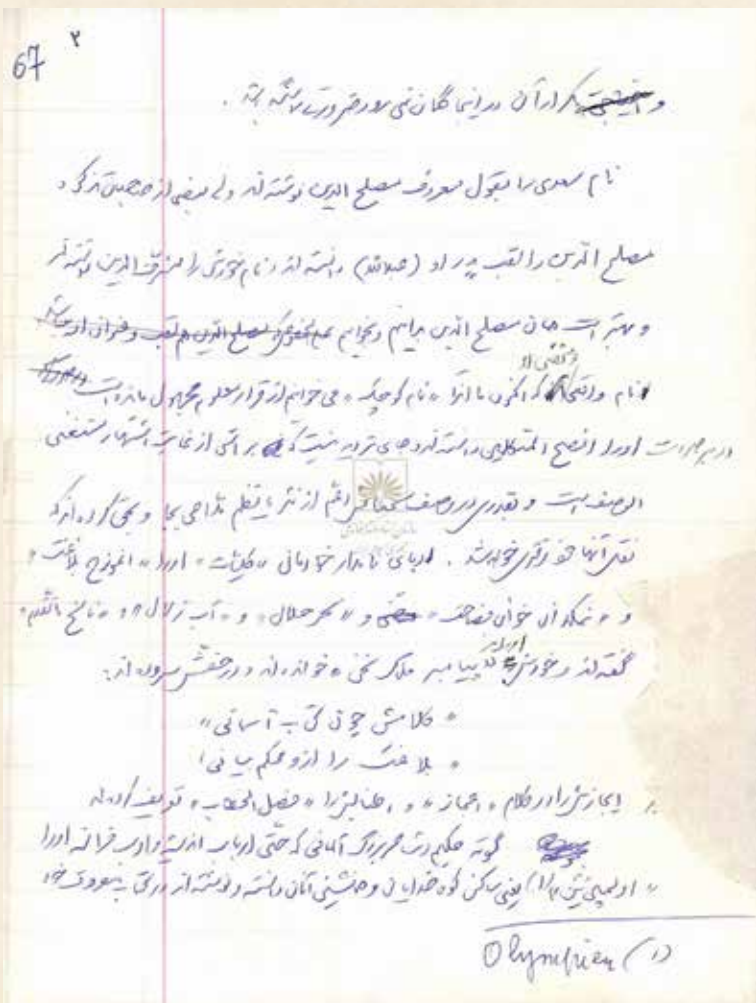 67 ۲
و تکرار آن در اینجا گمان نمی‌رود ضرورت داشته باشد.
نام سعدی را بقول معروف مصلح الدین نوشته‌اند ولی بعضی از صاحبان تذکره
مصلح الدین را لقب پدر او (عبدالله) دانسته‌اند و نام خودش را مشرف الدین دانسته‌اند
و بهتر است همان مصلح الدین بدانیم و بخوانیم
نام واقعی او که اکنون ما آنرا «نام کوچک» می‌خوانیم از قرار معلوم مجهول مانده است
او را افصح المتکلمین دانسته‌اند و جای تردید نیست که براستی از غایت اشتهار مستغنی
الوصف است و بقدری در وصف سخنانش اعم از نثر یا نظم مداحی بجا و بحق کرده‌اند که
نقل آنها خود دفتری خواهد شد. ادبای نامدار خودمانی «کلیات» او را «انموذج بلاغت»
و «نمکدان خوان فصاحت» و «سحر حلال» و «آب زلال» و
گفته‌اند و خودش را پیامبر ملک سخن خوانده‌اند و در حقش سروده‌اند:
«کلامش چون کتاب آسمانی»
«بلاغت را ازو محکم مبانی»
ایجازش را در کلام «اعجاز» و اطنابش را «فصل الخطاب» توصیف کرده‌اند
گوته حکیم و شاعر بزرگ آلمانی که حتی ارباب ادب فرانسه او را
«اولمپی‌ین» (۱) یعنی ساکن کوه خدایان و همنشین آنان دانسته و نوشته‌اند در کتاب معروف خود
Olympien (۱)